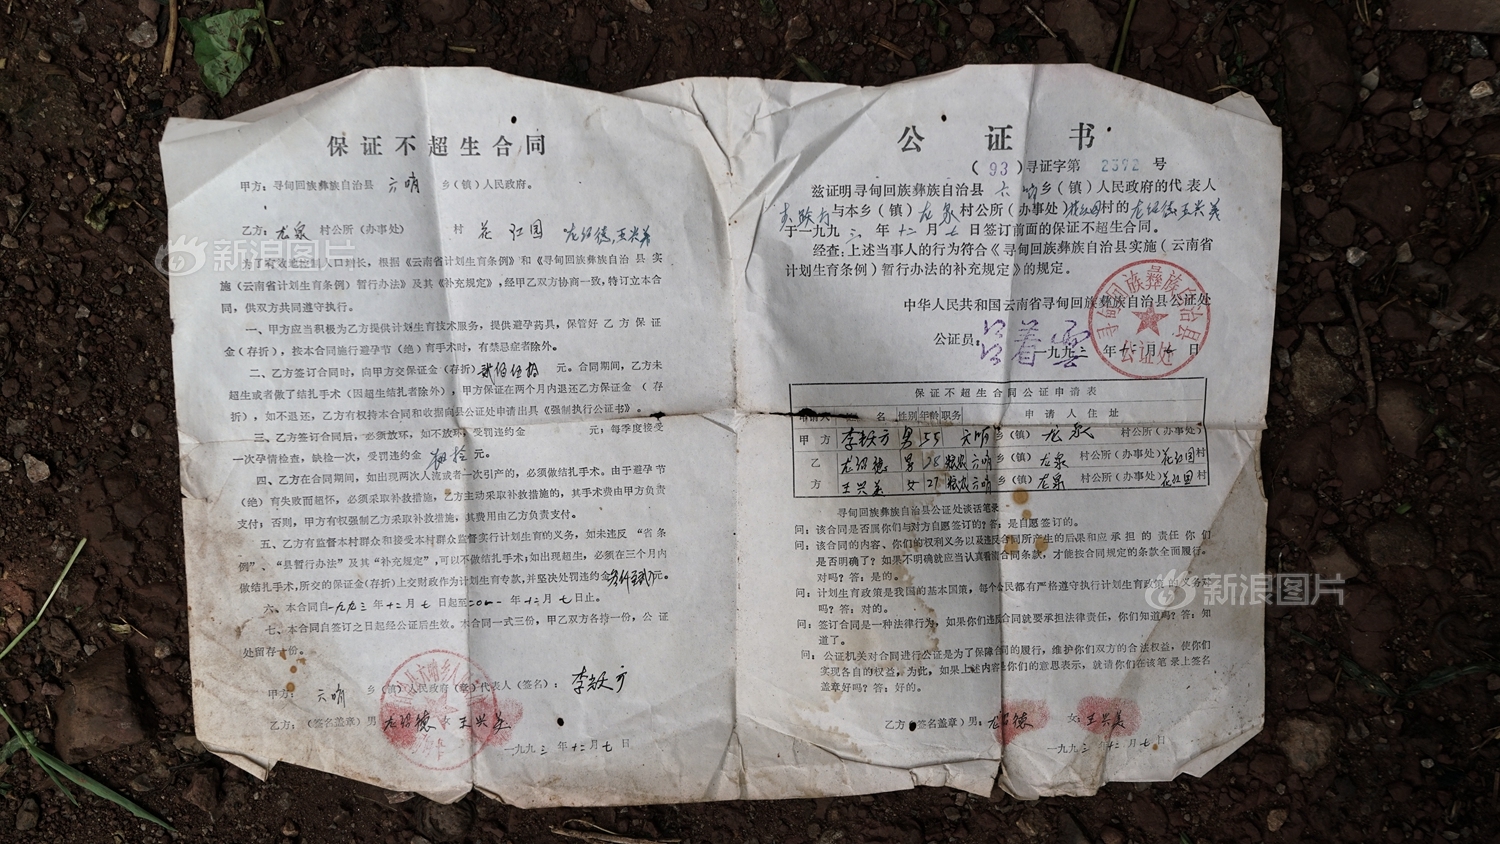 保证不超生合同
甲方：寻甸回族彝族自治县 六哨 乡（镇）人民政府。
乙方：龙泉 村公所（办事处） 村 花红园 龙绍德，王兴美
为了有效地控制人口增长，根据《云南省计划生育条例》和《寻甸回族彝族自治县实
施〈云南省计划生育条例〉暂行办法》及其《补充规定》，经甲乙双方协商一致，特订立本合
同，供双方共同遵守执行。
一、甲方应当积极为乙方提供计划生育技术服务，提供避孕药具，保管好乙方保证
金（存折），按本合同施行避孕节（绝）育手术时，有禁忌症者除外。
二、乙方签订合同时，向甲方交保证金（存折）贰佰伍拾 元。合同期间，乙方未
超生或者做了结扎手术（因超生结扎者除外），甲方保证在两个月内退还乙方保证金（存
折），如不退还，乙方有权持本合同和收据向县公证处申请出具《强制执行公证书》。
三、乙方签订合同后，必须放环，如不放环，受罚违约金 元；每季度接受
一次孕情检查，缺检一次，受罚违约金 拾元。
四、乙方在合同期间，如出现两次人流或者一次引产的，必须做结扎手术。由于避孕节
（绝）育失败而超怀，必须采取补救措施，乙方主动采取补救措施的，其手术费由甲方负责
支付；否则，甲方有权强制乙方采取补救措施，其费用由乙方负责支付。
五、乙方有监督本村群众和接受本村群众监督实行计划生育的义务，如未违反“省条
例”、“县暂行办法”及其“补充规定”，可以不做结扎手术；如出现超生，必须在三个月内
做结扎手术，所交的保证金（存折）上交财政作为计划生育专款，并坚决处罚违约金 元。
六、本合同自一九九三年十二月七日起至二〇 一年十二月七日止。
七、本合同自签订之日起经公证后生效。本合同一式三份，甲乙双方各持一份，公证
处留存一份。
甲方： 六哨 乡（镇）人民政府（章）代表人（签名）：
乙方：（签名盖章）男 龙绍德 女 王兴美
一九九三年十二月七日
公证书
（93）寻证字第 2372 号
兹证明寻甸回族彝族自治县 六哨乡（镇）人民政府的代表人
与本乡（镇）龙泉村公所（办事处）花红园村的龙绍德王兴美
于一九九三年十二月七日签订前面的保证不超生合同。
经查：上述当事人的行为符合《寻甸回族彝族自治县实施〈云南省
计划生育条例〉暂行办法的补充规定》的规定。
中华人民共和国云南省寻甸回族彝族自治县公证处
公证员：
一九九三年十二月七日
寻甸回族彝族自治县
公证处
保证不超生合同公证申请表
申请人 姓 名 性别 年龄 职务 申请人住址
甲方 男 55 六哨乡（镇） 龙泉 村公所（办事处）
乙 龙绍德 男 28 农民 六哨乡（镇） 龙泉 村公所（办事处）花红园村
方 王兴美 女 27 农民 六哨乡（镇） 龙泉 村公所（办事处）花红园村
寻甸回族彝族自治县公证处谈话笔录
问：该合同是否属你们与对方自愿签订的？答：是自愿签订的。
问：该合同的内容、你们的权利义务以及违反合同所产生的后果和应承担的责任你们
是否明确了？如果不明确就应当认真看清合同条款，才能按合同规定的条款全面履行。
对吗？答：是的。
问：计划生育政策是我国的基本国策，每个公民都有严格遵守执行计划生育政策的义务对
吗？答：对的。
问：签订合同是一种法律行为，如果你们违反合同就要承担法律责任，你们知道吗？答：知
道了。
问：公证机关对合同进行公证是为了保障合同的履行，维护你们双方的合法权益，使你们
实现各自的权益。为此，如果上述内容是你们的意思表示，就请你们在该笔录上签名
盖章好吗？答：好的。
乙方（签名盖章）男：龙绍德 女：王兴美
一九九三年十二月七日
新浪图片
新浪图片